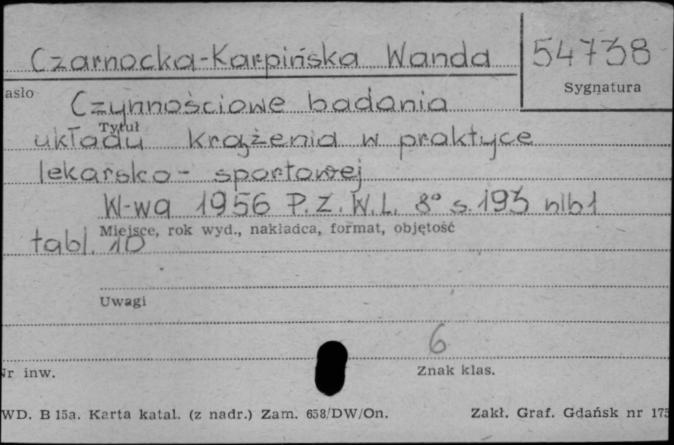 Czarnocka-Karpińska Wanda
54738
Sygnatura
asło
Czynnościowe badania
Tytuł
układu krążenia w praktyce
lekarsko - sportowej
W-wa 1956 P.Z.W.L. 8° s.193 nlb1
Miejsce, rok wyd., nakładca, format, objętość
tabl. 10
Uwagi
6
Nr inw.
Znak klas.
WD. B 15a. Karta katal. (z nadr.) Zam. 658/DW/On.
Zakł. Graf. Gdańsk nr 175